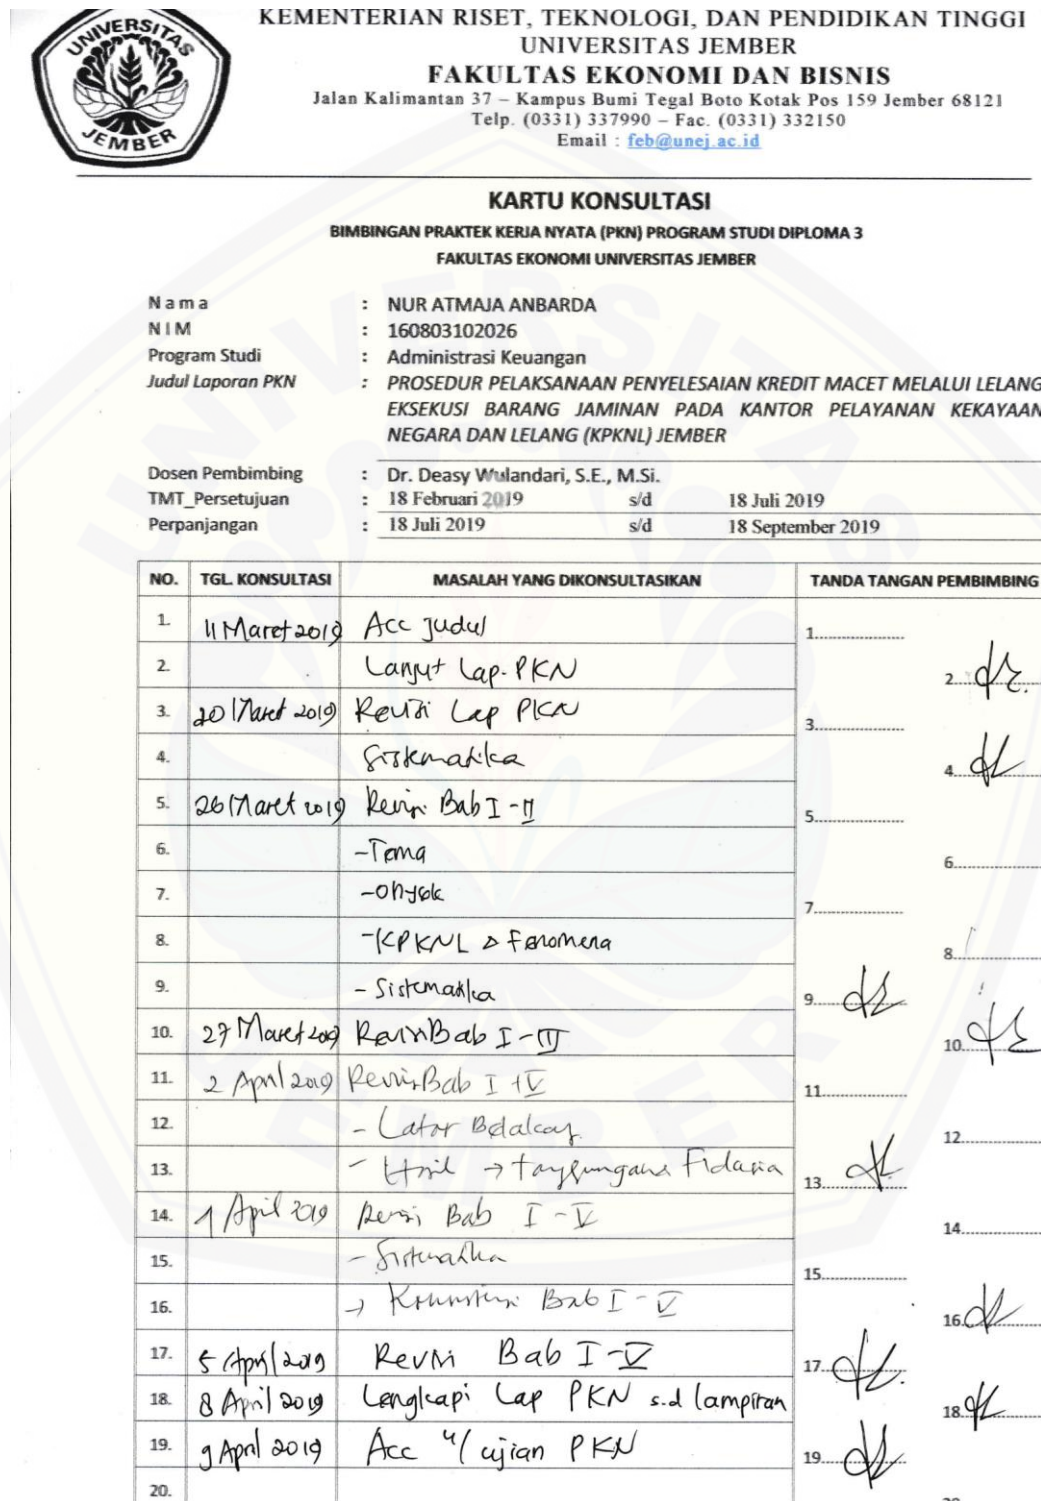 UNIVERSITAS
JEMBER
KEMENTERIAN RISET, TEKNOLOGI, DAN PENDIDIKAN TINGGI
UNIVERSITAS JEMBER
FAKULTAS EKONOMI DAN BISNIS
Jalan Kalimantan 37 – Kampus Bumi Tegal Boto Kotak Pos 159 Jember 68121
Telp. (0331) 337990 – Fac. (0331) 332150
Email : feb@unej.ac.id
KARTU KONSULTASI
BIMBINGAN PRAKTEK KERJA NYATA (PKN) PROGRAM STUDI DIPLOMA 3
FAKULTAS EKONOMI UNIVERSITAS JEMBER
N a m a : NUR ATMAJA ANBARDA
N I M : 160803102026
Program Studi : Administrasi Keuangan
Judul Laporan PKN : PROSEDUR PELAKSANAAN PENYELESAIAN KREDIT MACET MELALUI LELANG
EKSEKUSI BARANG JAMINAN PADA KANTOR PELAYANAN KEKAYAAN
NEGARA DAN LELANG (KPKNL) JEMBER
Dosen Pembimbing : Dr. Deasy Wulandari, S.E., M.Si.
TMT_Persetujuan : 18 Februari 2019 s/d 18 Juli 2019
Perpanjangan : 18 Juli 2019 s/d 18 September 2019
NO. TGL. KONSULTASI MASALAH YANG DIKONSULTASIKAN TANDA TANGAN PEMBIMBING
1. 11 Maret 2019 Acc Judul 1.
2. Lanjut Lap. PKN 2.
3. 20 Maret 2019 Revisi Lap PKN 3.
4. Sistematika 4.
5. 26 Maret 2019 Revisi Bab I - II 5.
6. - Tema 6.
7. - Obyek 7.
8. - KPKNL Fenomena 8.
9. - Sistematika 9.
10. 27 Maret 2019 Revisi Bab I - III 10.
11. 2 April 2019 Revisi Bab I 11.
12. - Latar Belakang 12.
13. - Hasil → Fidusia 13.
14. 1 April 2019 Revisi Bab I - V 14.
15. - Sistematika 15.
16. → Bab I - V 16.
17. 5 April 2019 Revisi Bab I - V 17.
18. 8 April 2019 Lengkapi Lap PKN s.d lampiran 18.
19. 9 April 2019 Acc u/ ujian PKN 19.
20.